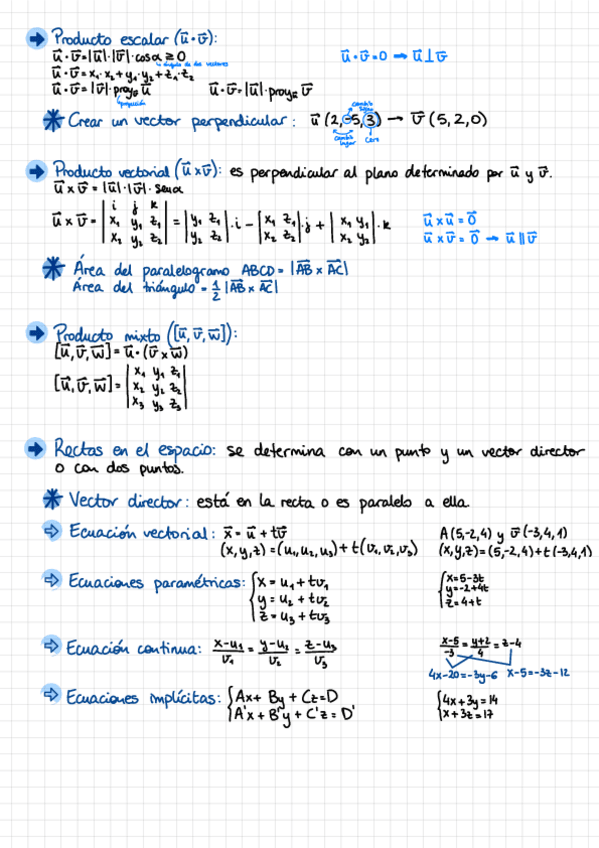 Producto escalar (u⃗·v⃗):
u⃗·v⃗=|u⃗|·|v⃗|·cosα≥0
ángulo de dos vectores
u⃗·v⃗=0 → u⃗⊥v⃗
u⃗·v⃗=x₁·x₂+y₁·y₂+z₁·z₂
u⃗·v⃗=|v⃗|·proyᵥ⃗ u⃗
u⃗·v⃗=|u⃗|·proyᵤ⃗ v⃗
proyección
cambio signo
Crear un vector perpendicular: u⃗(2,-5,3) → v⃗(5,2,0)
cambio lugar
Cero
Producto vectorial (u⃗×v⃗): es perpendicular al plano determinado por u⃗ y v⃗.
u⃗×v⃗=|u⃗|·|v⃗|·senα
u⃗×v⃗=|i j k; x₁ y₁ z₁; x₂ y₂ z₂|=|y₁ z₁; y₂ z₂|·i-|x₁ z₁; x₂ z₂|·j+|x₁ y₁; x₂ y₂|·k
u⃗×u⃗=0⃗
u⃗×v⃗=0⃗ → u⃗∥v⃗
Área del paralelogramo ABCD=|AB⃗×AC⃗|
Área del triángulo=1/2|AB⃗×AC⃗|
Producto mixto ([u⃗,v⃗,w⃗]):
[u⃗,v⃗,w⃗]=u⃗·(v⃗×w⃗)
[u⃗,v⃗,w⃗]=|x₁ y₁ z₁; x₂ y₂ z₂; x₃ y₃ z₃|
Rectas en el espacio: se determina con un punto y un vector director
o con dos puntos.
Vector director: está en la recta o es paralelo a ella.
Ecuación vectorial: x⃗=u⃗+tv⃗
A(5,-2,4) y v⃗(-3,4,1)
(x,y,z)=(u₁,u₂,u₃)+t(v₁,v₂,v₃)
(x,y,z)=(5,-2,4)+t(-3,4,1)
Ecuaciones paramétricas: {x=u₁+tv₁
y=u₂+tv₂
z=u₃+tv₃
{x=5-3t
y=-2+4t
z=4+t
Ecuación continua: x-u₁/v₁=y-u₂/v₂=z-u₃/v₃
x-5/-3=y+2/4=z-4
4x-20=-3y-6
x-5=-3z-12
Ecuaciones implícitas: {Ax+By+Cz=D
A'x+B'y+C'z=D'
{4x+3y=14
x+3z=17